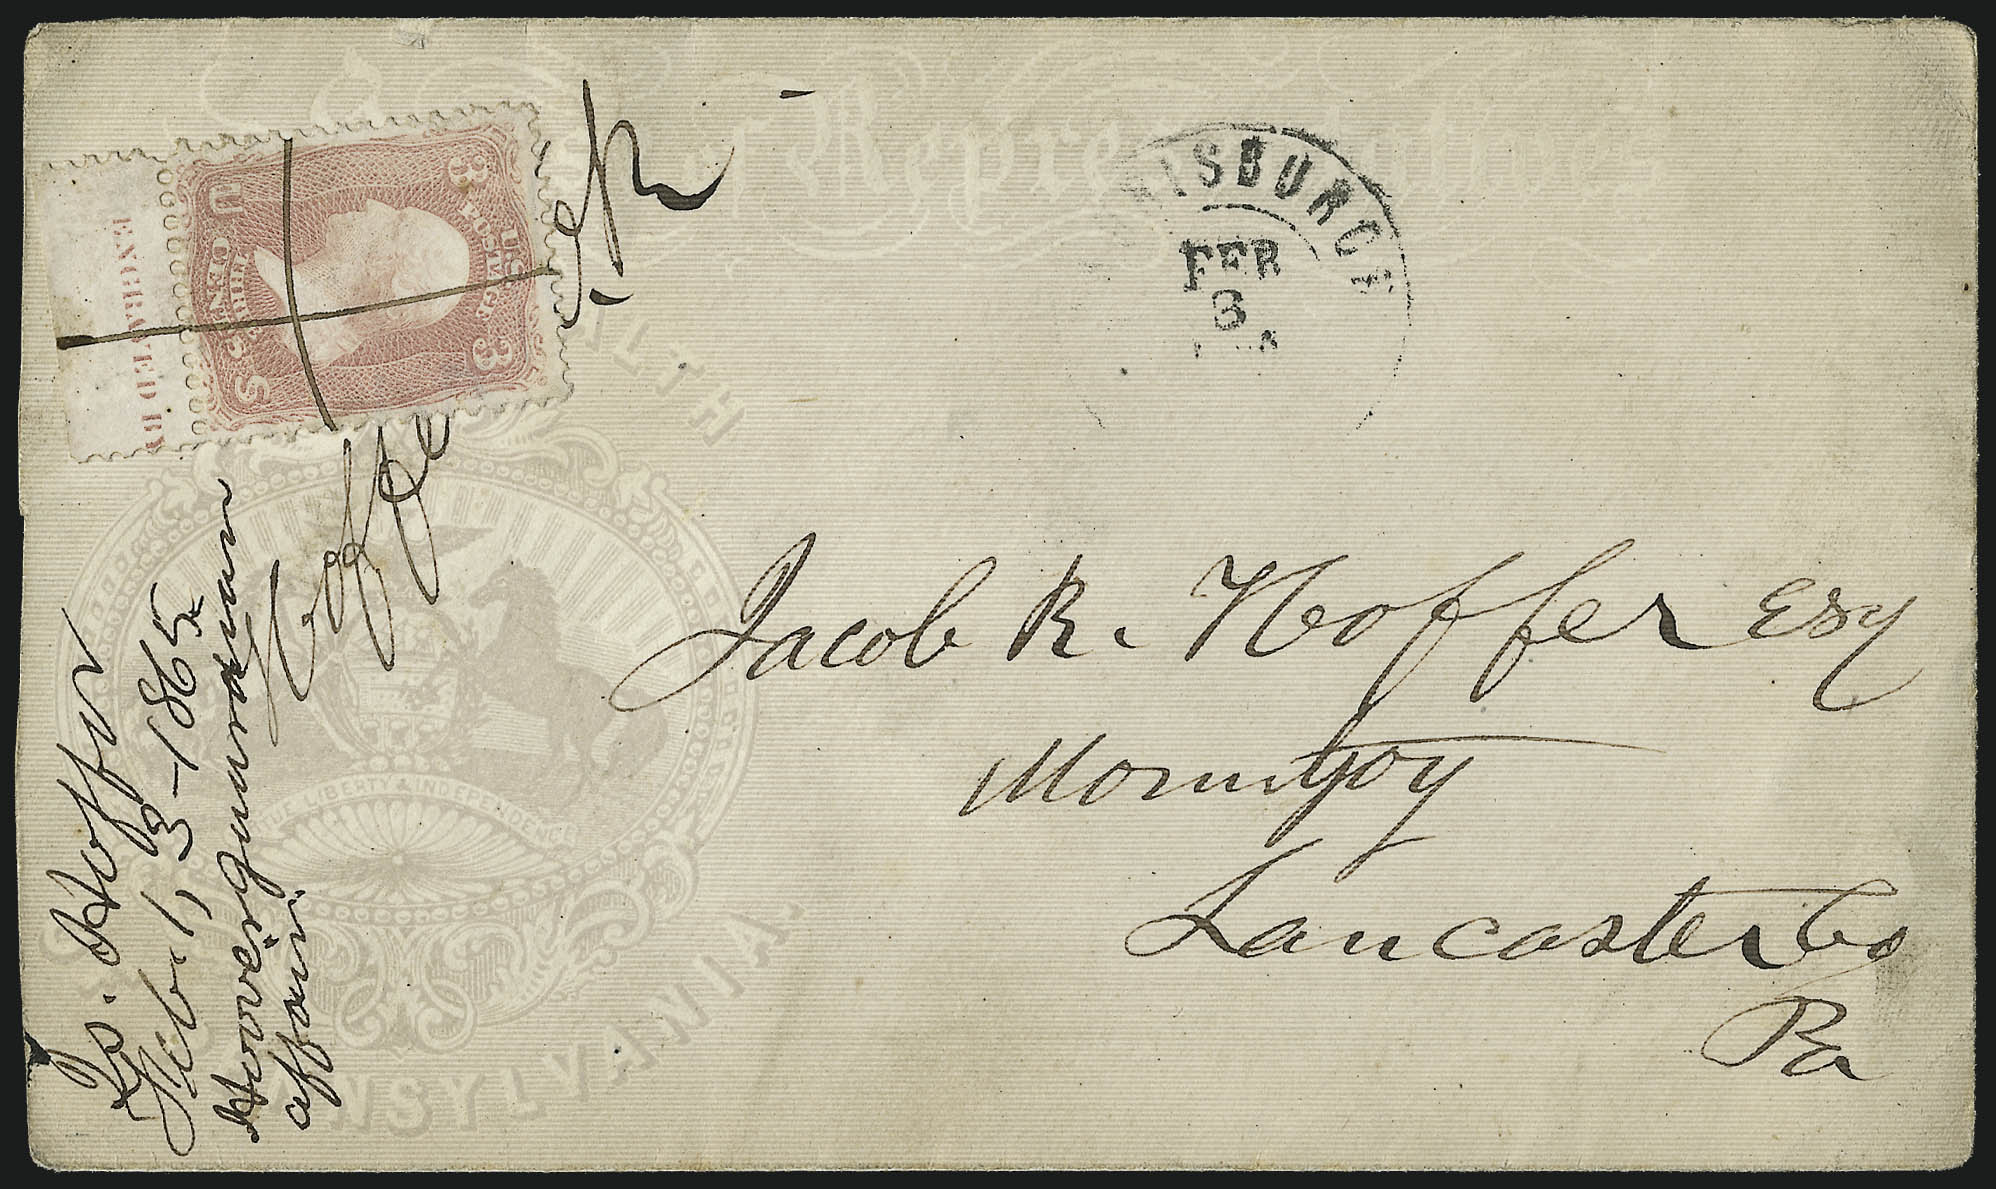 House of Representatives
ENGRAVED BY
U.S. POSTAGE
3 3
THREE CENTS
U S
RISBURG
FEB
3
Jacob R. Hoffer Esq
Mountjoy
Lancaster Co
Pa
Hoffer
Feb. 1, 3 - 1865
affair
Hoffer
LTH
PENNSYLVANIA.
LIBERTY & INDEPENDENCE